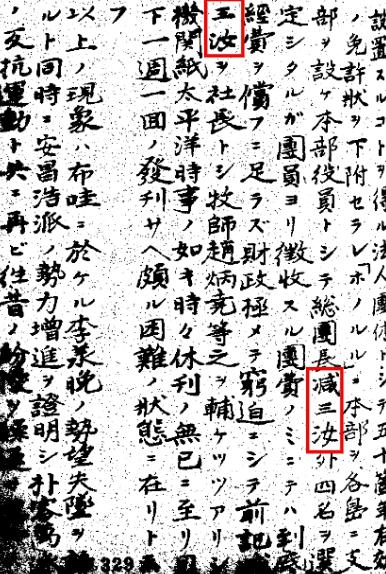 設置スルコトヲ得ル法人團体トシテ五十箇年有効
ノ免許狀ヲ下附セラレ「ホノルル」ニ本部ヲ各島ニ支
部ヲ設ケ本部役員トシテ総團長減三汝外四名ヲ選
定シタルガ團員ヨリ徴收スル團費ノミニテハ到底
經費ヲ償フニ足ラズ財政極メテ窮迫ニシテ前記
三汝ヲ社長トシ牧師趙炳尭等之ヲ輔ケツツアリシ
機関紙太平洋時事ノ如キ時々休刊ノ無已ニ至リ
下一週一面ノ發刊サヘ頗ル困難ノ狀態ニ在リト
フ
以上ノ現象ハ布哇ニ於ケル李承晩ノ勢望失墜ヲ
ルト同時ニ安昌浩派ノ勢力増進ヲ證明シ朴容萬
ノ反抗運動ト共ニ再ビ往昔ノ紛擾ヲ
329